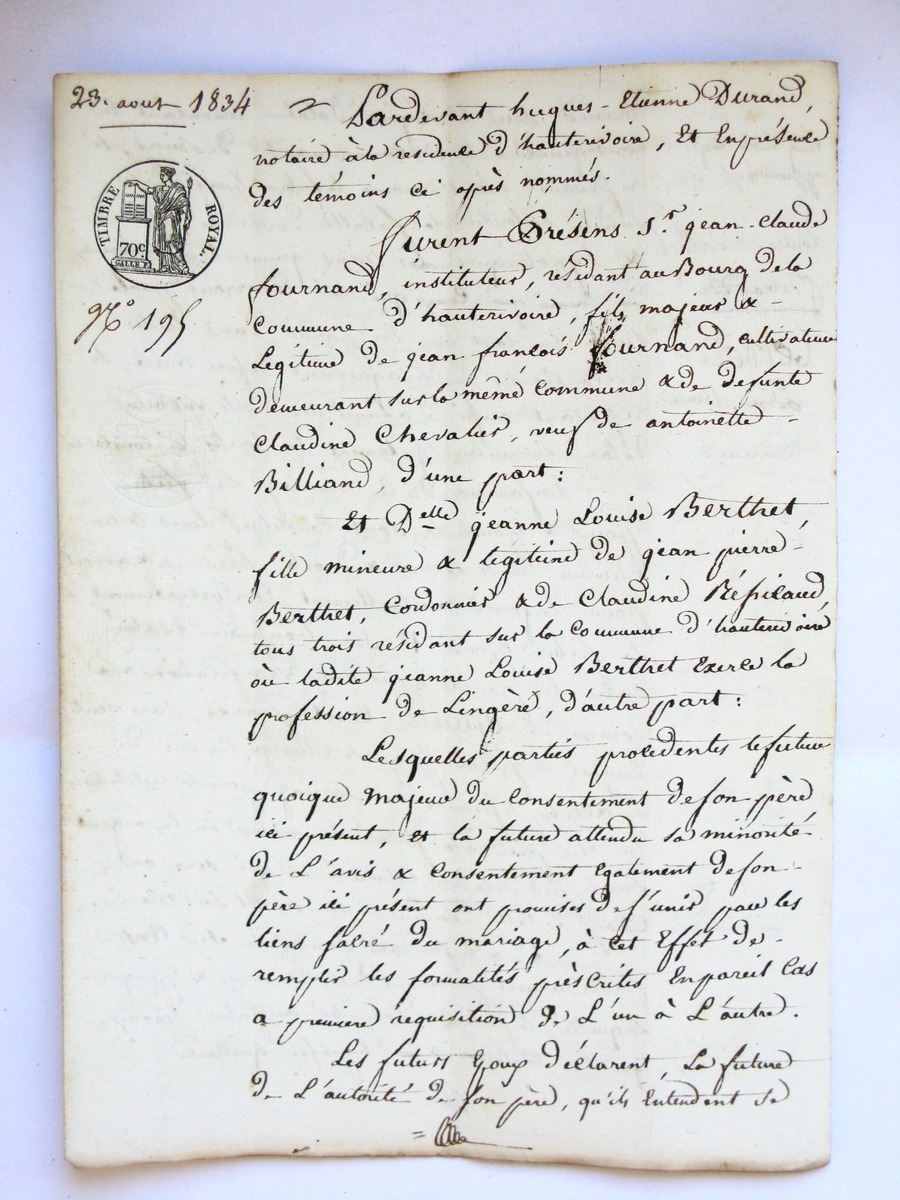 23. aout 1834
Pardevant hugues - Etienne Durand,
notaire à la residence d'hauterivoire, Et En présence
des témoins ci après nommés.
TIMBRE ROYAL.
70c
GALLE F.
N° 195
furent Présens Sr jean-Claude
fournand, instituteur, résidant au Bourg de la
Commune d'hauterivoire, fils majeur &
Légitime de jean françois fournand, cultivateur
demeurant sur la même Commune & de defunte
Claudine Chevalier, veuf de antoinette
Billiand, d'une part:
Et Delle jeanne Louise Berthet,
fille mineure & legitime de jean pierre
Berthet, Cordonnier & de Claudine
tous trois résidant sur la Commune d'hauterivoire
où ladite jeanne Louise Berthet Exerce la
profession de Lingère, d'autre part:
Lesquelles parties procedentes le futur
quoique majeur du Consentement de son père
ici présent, et la future attendu sa minorité
de L'avis & Consentement également de son
père ici présent ont promises de s'unir par les
liens sacré du mariage, à cet Effet de
remplir les formalités prèscrites En pareil Cas
a première requisition de L'un à L'autre.
Les futurs Epoux déclarent, La future
de L'autorité de son père, qu'ils Entendent se